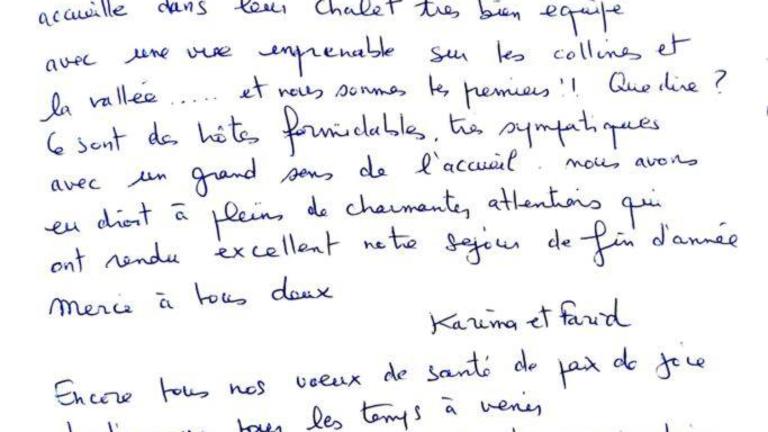 accueille dans leur chalet très bien équipé
avec une vue imprenable sur les collines et
la vallée..... et nous sommes les premiers!! Que dire?
Ce sont des hôtes formidables, très sympatiques
avec un grand sens de l'accueil. nous avons
eu droit à pleins de charmantes attentions qui
ont rendu excellent notre sejour de fin d'année
Merci à tous deux
Karima et Farid
Encore tous nos voeux de santé de paix de joie
tous les temps à venir